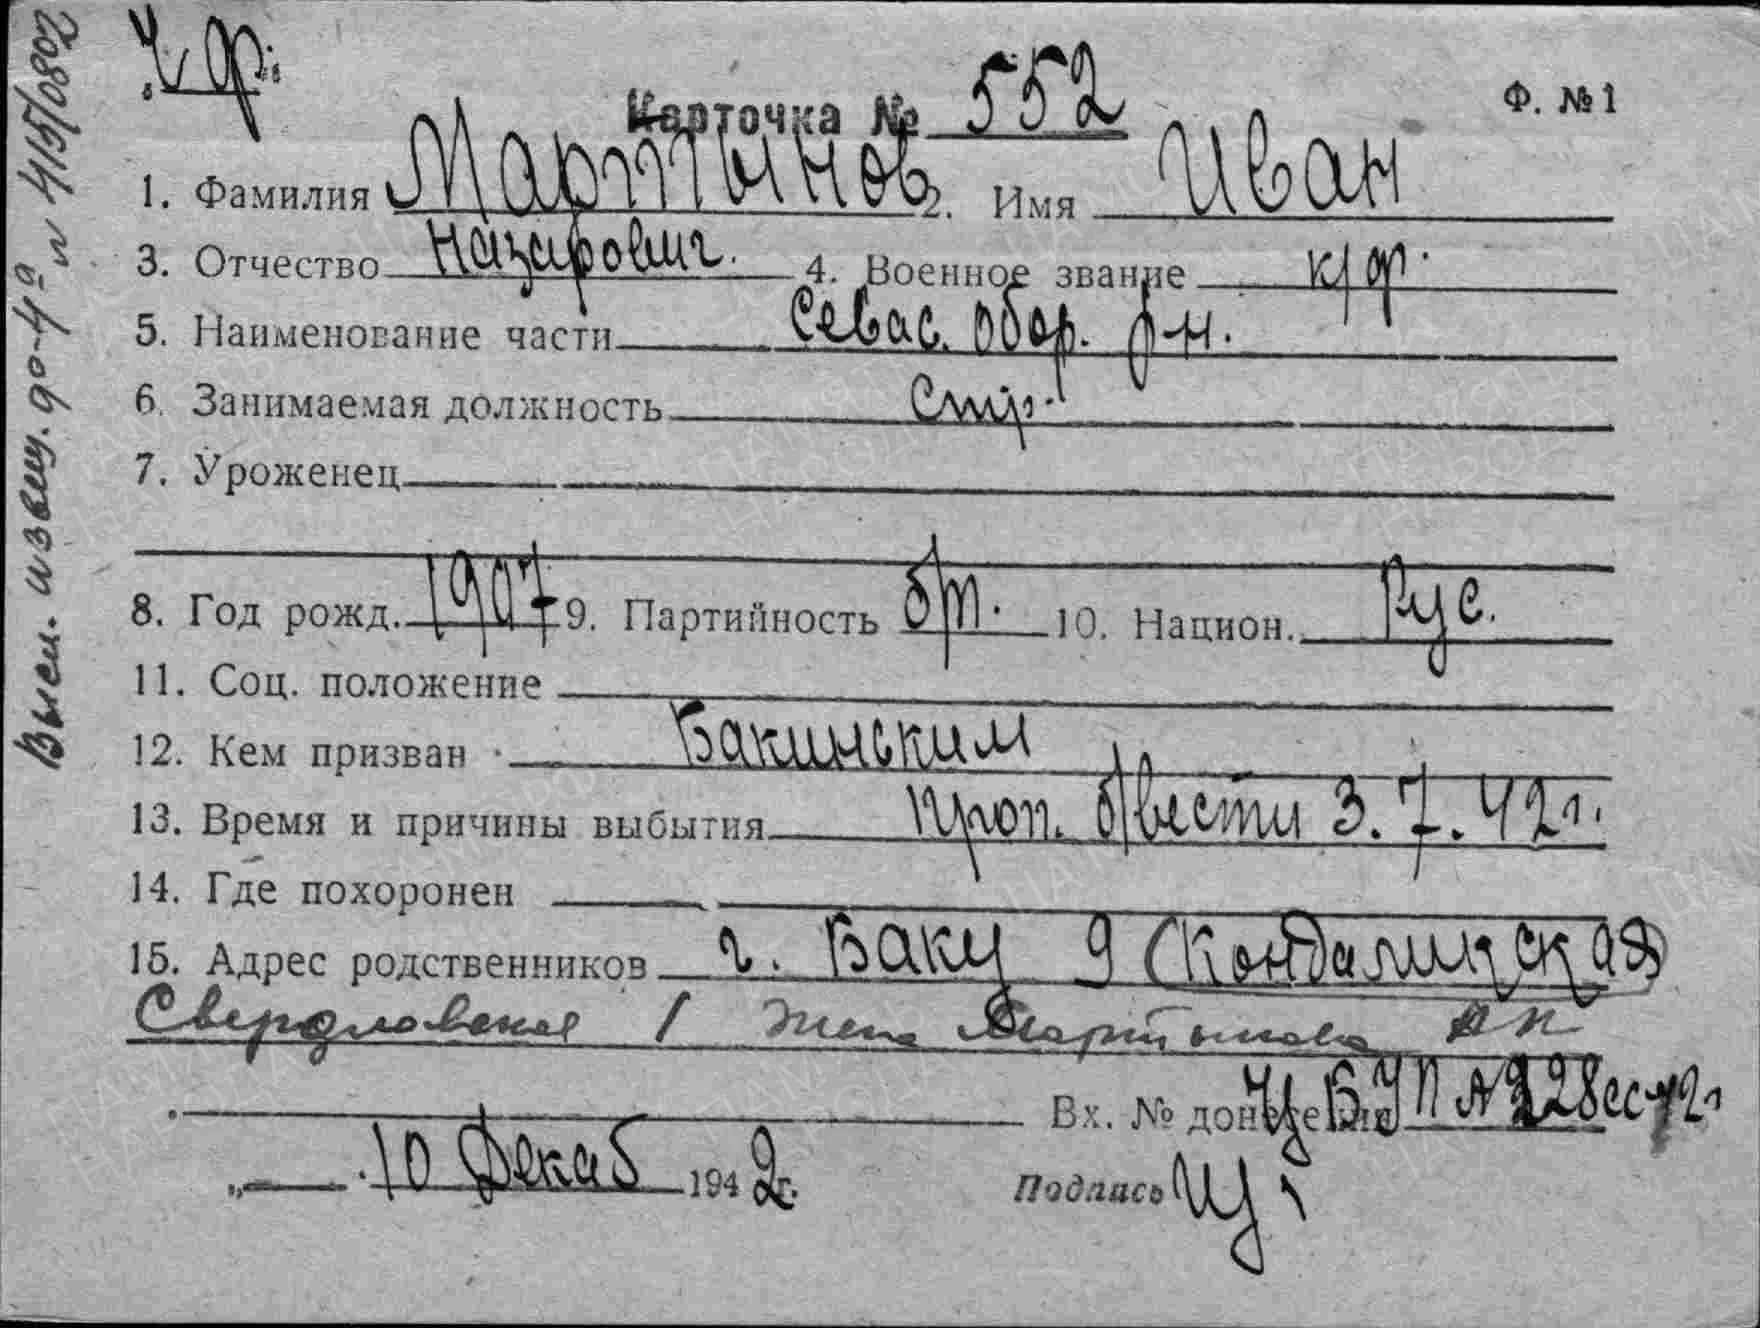 ч/ф.
Карточка № 552 Ф. №1
1. Фамилия Мартынов 2. Имя Иван
3. Отчество Назарович. 4. Военное звание к/ф.
5. Наименование части Севас. обор. р-н.
6. Занимаемая должность Стр.
7. Уроженец
8. Год рожд. 1907 9. Партийность б/п. 10. Национ. Рус.
11. Соц. положение
12. Кем призван Бакинским
13. Время и причины выбытия проп. б/вести 3.7.42г.
14. Где похоронен
15. Адрес родственников г. Баку 9
Свердловская / Жена Мартынова
Вх. № донесения УБУП № 228сс 42г
„ 10 Декаб 1942г.
Подпись
Высл. извещ. до-4а № 4/55/0802